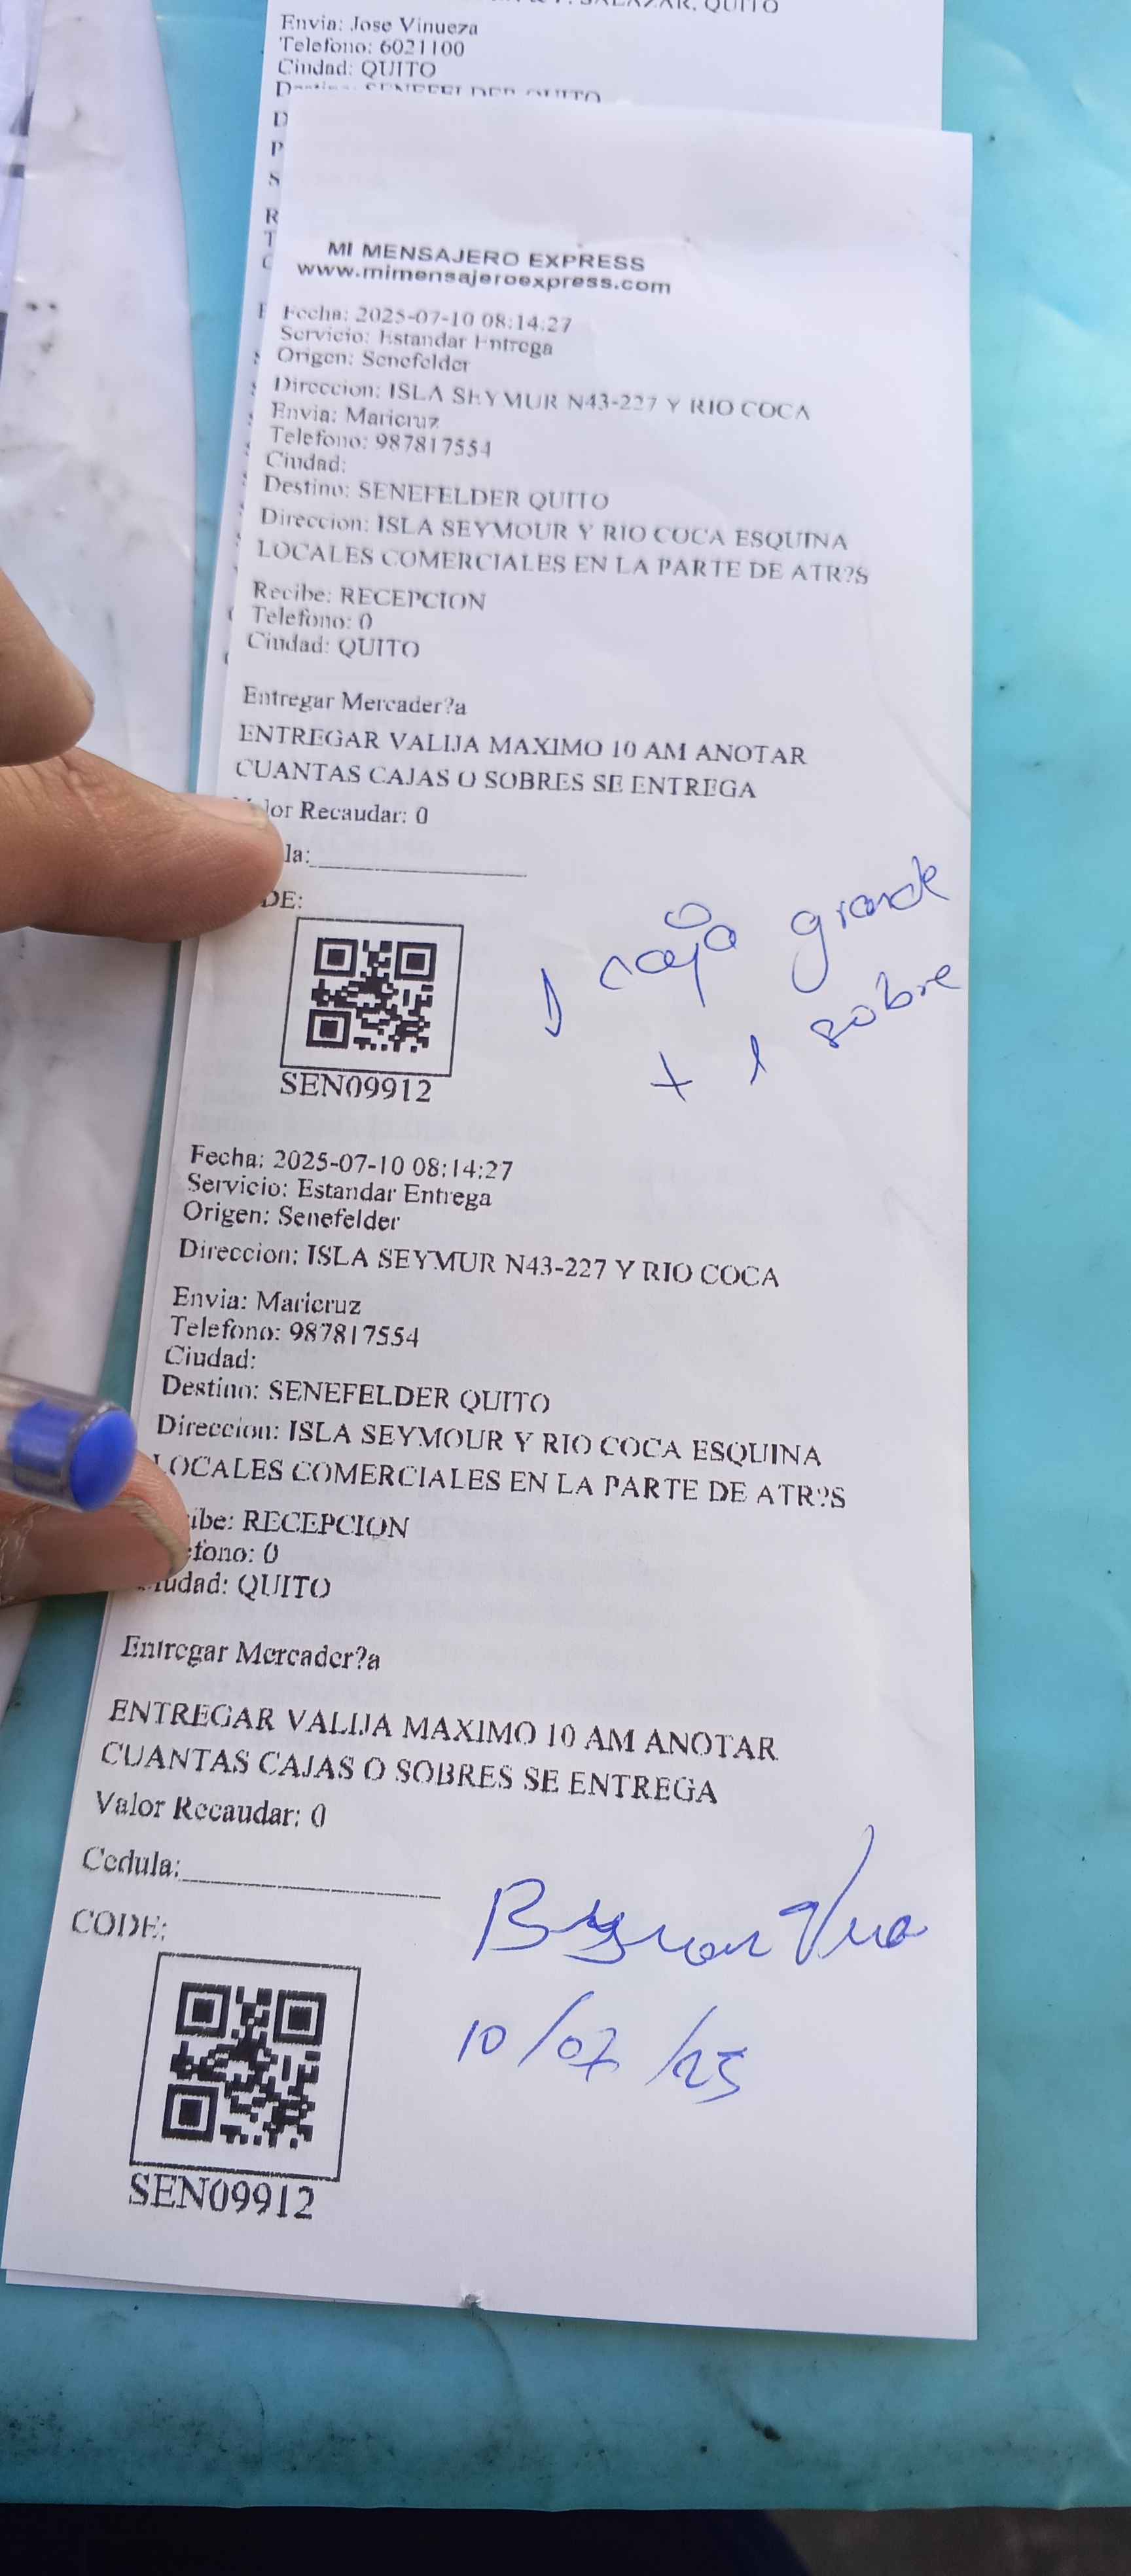 SALAZAR, QUITO
Envia: Jose Vinueza
Telefono: 6021100
Ciudad: QUITO
Destino: SENEFELDER QUITO
D
P
S
R
T
C
MI MENSAJERO EXPRESS
www.mimensajeroexpress.com
Fecha: 2025-07-10 08:14:27
Servicio: Estandar Entrega
Origen: Senefelder
Direccion: ISLA SEYMUR N43-227 Y RIO COCA
Envia: Maricruz
Telefono: 987817554
Ciudad:
Destino: SENEFELDER QUITO
Direccion: ISLA SEYMOUR Y RIO COCA ESQUINA
LOCALES COMERCIALES EN LA PARTE DE ATR?S
Recibe: RECEPCION
Telefono: 0
Ciudad: QUITO
Entregar Mercader?a
ENTREGAR VALIJA MAXIMO 10 AM ANOTAR
CUANTAS CAJAS O SOBRES SE ENTREGA
lor Recaudar: 0
la:
DE:
1 caja grande
+ 1 sobre
SEN09912
Fecha: 2025-07-10 08:14:27
Servicio: Estandar Entrega
Origen: Senefelder
Direccion: ISLA SEYMUR N43-227 Y RIO COCA
Envia: Maricruz
Telefono: 987817554
Ciudad:
Destino: SENEFELDER QUITO
Direccion: ISLA SEYMOUR Y RIO COCA ESQUINA
LOCALES COMERCIALES EN LA PARTE DE ATR?S
ibe: RECEPCION
efono: 0
iudad: QUITO
Entregar Mercader?a
ENTREGAR VALIJA MAXIMO 10 AM ANOTAR
CUANTAS CAJAS O SOBRES SE ENTREGA
Valor Recaudar: 0
Cedula:
CODE:
10/07/25
SEN09912